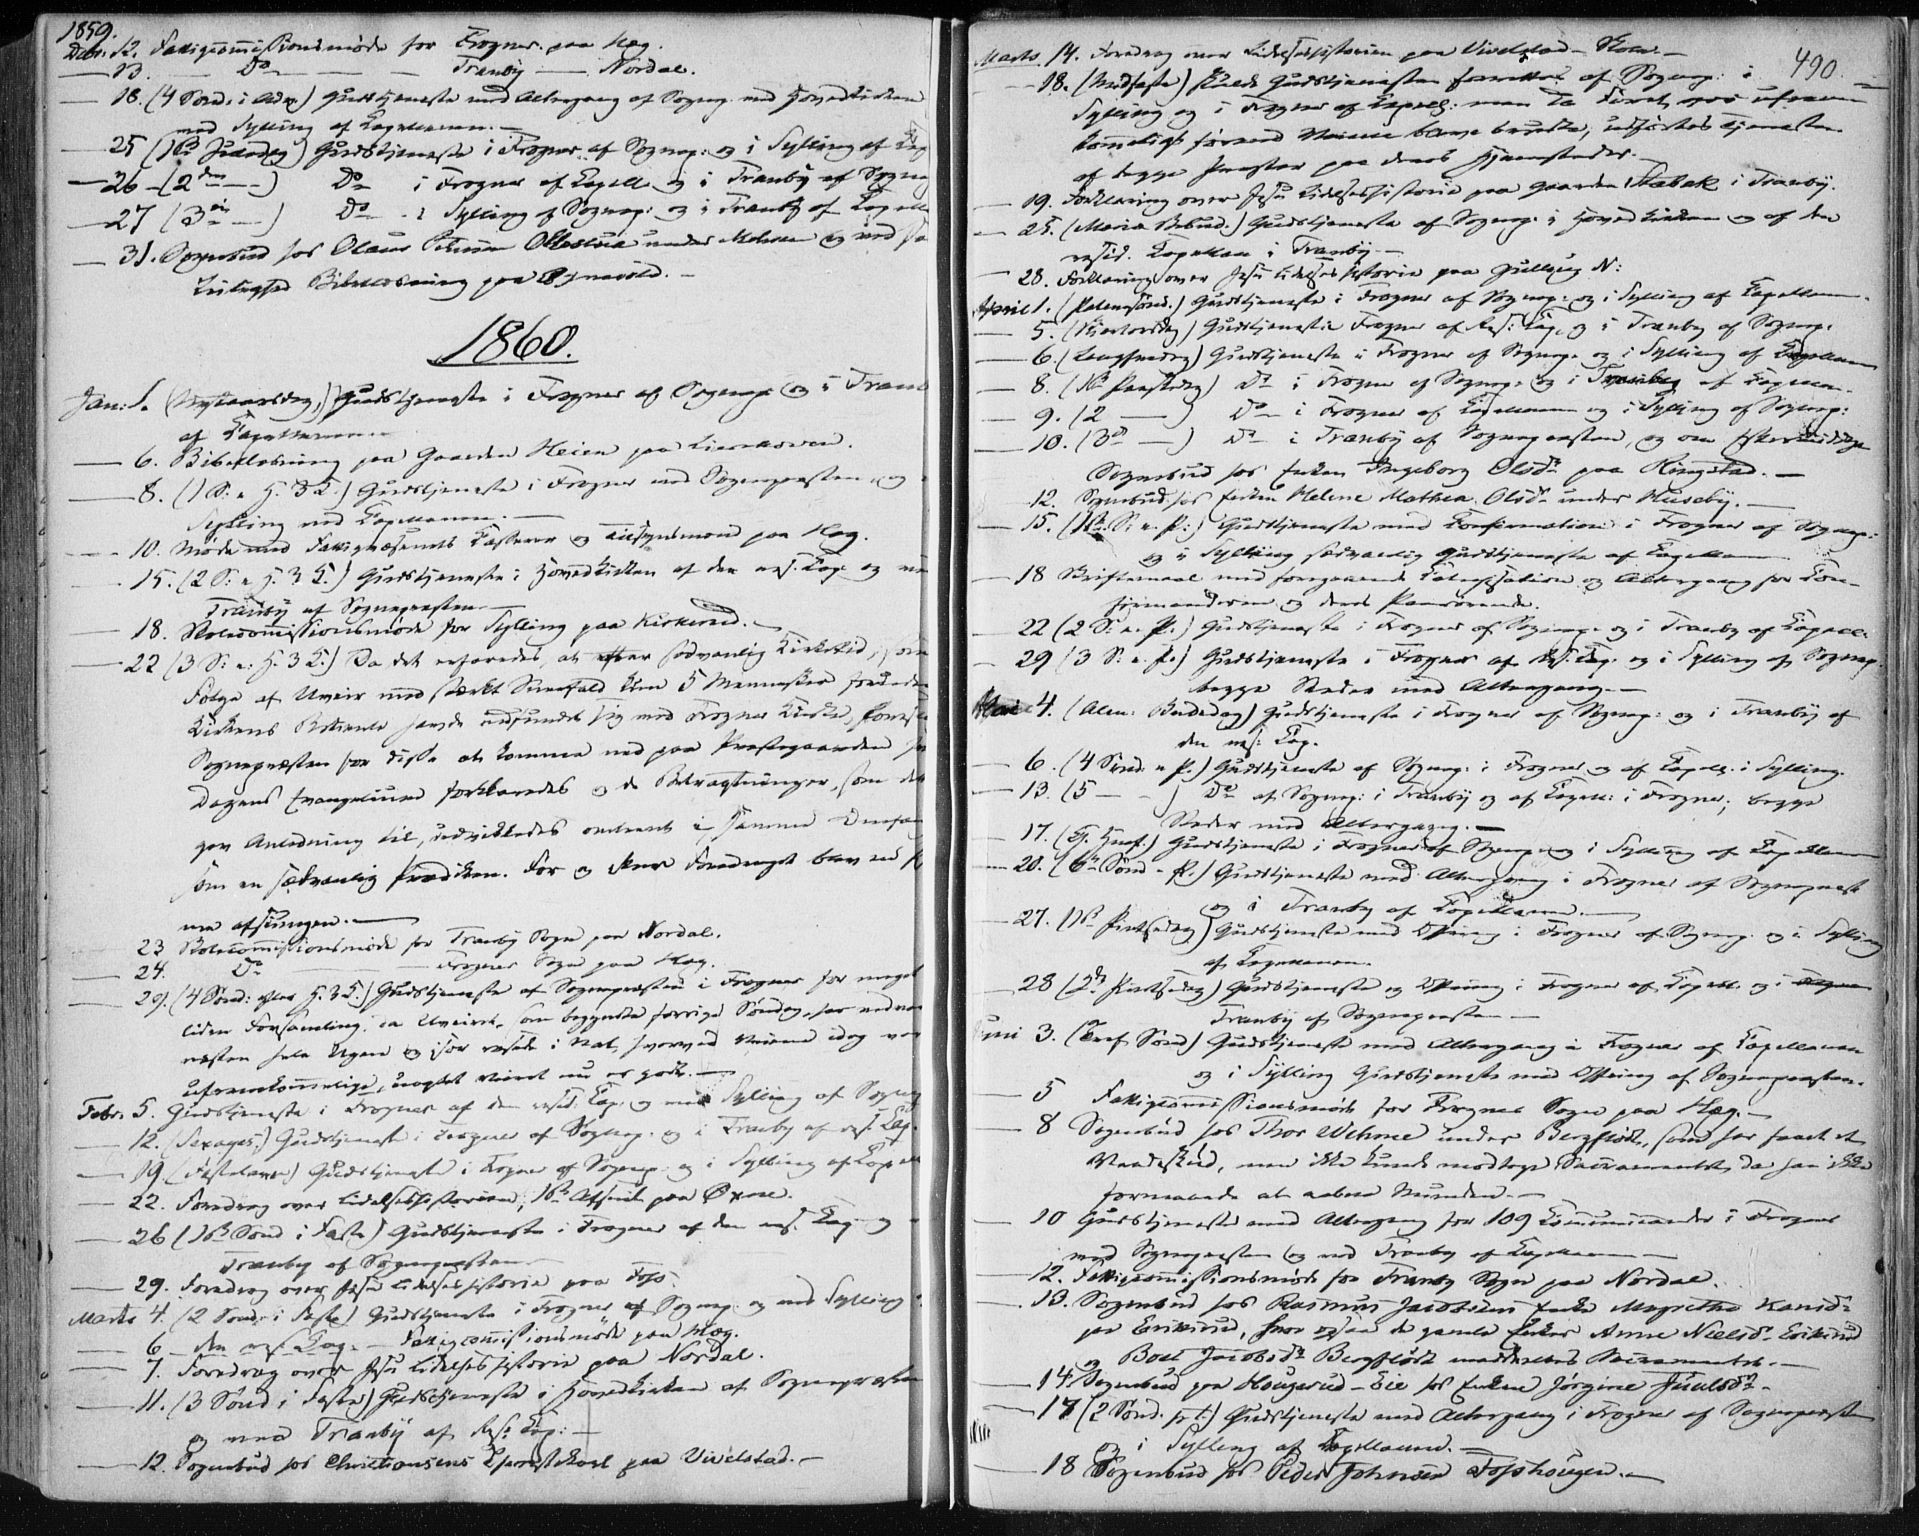 1859.
Decbr. 12. Fattigcommissionsmöde for Frogner paa Hæg.
— 13. — Do — — — Tranby — Nordal.
— 18. (4 Sönd: i Adv.) Gudstjeneste med Altergang af Sognep. ved Hovedkirken
ved Sylling af Capellanen. —
— 25 (1ste Juledag) Gudstjeneste i Frogner af Sognep: og i Sylling af Cap
— 26 – (2den —) Do i Frogner af Capell. og i Tranby af Sognep
— 27 (3die —) Do - i Sylling af Sognep: og i Tranby af Capell
— 31. Sognebud hos Olaus under og ved
Leilighed Bibellæsning paa —
1860.
Jan: 1. (Nytaarsdag) Gudstjeneste i Frogner af Sognep. og i Tranb
af Capellanen
— 6. Bibellæsning paa Gaarden Heien paa Lierskoven.
— 8. (1 S: e. H. 3 K.) Gudstjeneste i Frogner ved Sognepræsten og
Sylling ved Capellanen. —
— 10. Möde med Fattigvæsenets Casserer og Tilsynsmænd paa Hæg.
— 15. (2 S: e. H. 3 K.) Gudstjeneste i Hovedkirken af den res. Cap. og
Tranby af Sognepræsten. —
— 18. Skolecommissionsmöde for Sylling paa Kirkerud. —
— 22 (3 S: e: H. 3 K.) Da det erfaredes, at efter sedvanlig Kirketid, som
Fölge af Uveir med stærkt Sneefald kun 5 Mennesker foruden
Kirkens Betjente havde indfundet sig ved Frogner Kirke,
Sognepræsten for disse at komme ned paa Præstegaarden
Dagens Evangelium forklaredes og de Betragtninger, som det
gav Anledning til, udvikledes omtrent i samme Omfang
som en sædvanlig Prædiken. Før og efter Foredraget blev
me afsungen. —
23 Skolecommissionsmöde for Tranby Sogn paa Nordal.
— 24. Do — Frogner Sogn paa Hæg.
— 29. (4 Sönd: efter H. 3 K.) Gudstjeneste af Sognepræsten i Frogner for meget
liden Forsamling, da Uveiret, som begyndte forrige Söndag, har vedvaret
næsten hele Ugen og især rasede i Nat, hvorved Veiene idag vare
ufremkommelige, uagtet Veiret nu er godt. —
Febr. 5. Gudstjeneste i Frogner af den resid. Cap. og ved Sylling af Sognep
— 12. (Sexages.) Gudstjeneste i Frogner af Sognep. og i Tranby af res. Cap.
— 19. (Fastelavn) Gudstjeneste i Frogner af Sognep. og i Sylling af Capell
— 22. Foredrag over Lidelseshistorien, 1ste Afsnit paa Øxne.
— 26 (1ste Sönd i Faste) Gudstjeneste i Frogner af den res. Cap. og
Tranby af Sognepræsten —
— 29. Foredrag over Jesu Lidelseshistorie paa Foss.
Marts 4. (2 Sönd. i Faste) Gudstjeneste i Frogner af Sognep. og ved Sylling
— 6 – den res. Cap. — Fattigcommissionsmöde paa Hæg.
— 7. Foredrag over Jesu Lidelseshistorie paa Nordal.
— 11. (3 Sönd i Faste) Gudstjeneste i Hovedkirken af Sognepræsten
og ved Tranby af Res. Cap: —
— 12. Sognebud hos Christiansens Tjenestekarl paa Vivelstad. —
490.
Marts. 14. Foredrag over Lidelseshistorien paa Vivelstad – Skole —
— 18. (Midfaste) skulde Gudstjenesten forrettes af Sognep: i
Sylling og i Frogner af Capell. men da Föret var ufrem-
kommeligt förend Veiene bleve brudte, udförtes Tjenesten
af begge Præster paa deres Hjemsteder. —
— 19. Forklaring over Jesu Lidelseshistorie paa Gaarden Stabæk i Tranby.
— 25. (Mariæ Bebud.) Gudstjeneste af Sognep. i Hovedkirken og af den
resid. Capellan i Tranby —
— 28. Forklaring over Jesu Lidelseshistorie paa Gullaug N:
April 1. (Palmesönd.) Gudstjeneste i Frogner af Sognep: og i Sylling af Capellanen.
— 5. (Skjertorsdag) Gudstjeneste i Frogner af Res: Cap. og i Tranby af Sognep.
— 6. (Langfredag) Gudstjeneste i Frogner af Sognep. og i Sylling af Capellanen
— 8. (1ste Paaskedag) Do i Frogner af Sognep. og i Tranby af Capellan.
— 9. (2 —) Do — i Frogner af Capellanen og i Sylling af Sognep:
— 10. (3die —) Do — i Tranby af Sognepræsten, og om Eftermiddage
Sognebud hos Enken Ingeborg Olsdr. paa Ringstad. —
— 12. Sognebud hos Enken Helene Mathea Olsdr. under Huseby. —
— 15. (1ste S: e. P:) Gudstjeneste med Confirmation i Frogner af Sognep.:
og i Sylling sædvanlig Gudstjeneste af Capellan
— 18 Skriftemaal med foregaaende Catechisation og Altergang for Con-
firmanderne og deres Paarörende.
— 22 (2 S: e. P.) Gudstjeneste i Frogner af Sognep. og i Tranby af Capell.
— 29 (3 S: e. P.) Gudstjeneste i Frogner af Res. Cap. og i Sylling af Sognep.
begge Steder med Altergang. —
Mai 4. (Alm: Bededag) Gudstjeneste i Frogner af Sognep: og i Tranby af
den res: Cap.
— 6. (4 Sönd. e P.) Gudstjeneste af Sognep: i Frogner og af Capell. i Sylling.
— 13. (5 — -) Do af Sognep: i Tranby og af Capell: i Frogner; begge
Steder med Altergang. —
— 17. (Ch. Himf.) Gudstjeneste i Frogner af Sognep og i Sylling af Capellanen
— 20. (6te Sönd e P.) Gudstjeneste med Altergang i Frogner af Sognepræst
og i Tranby af Capellanen. —
— 27. (1ste Pintsedag) Gudstjeneste med Offring i Frogner af Sognep. og i Sylling
af Capellanen.
— 28 (2den Pintsedag) Gudstjeneste og Offring i Frogner af Capell. og i
Tranby af Sognepræsten —
Juni 3. (Tref Sönd) Gudstjeneste med Altergang i Frogner af Capellanen
og i Sylling Gudstjeneste med Offring af Sognepræsten.
— 5 Fattigcommissionsmöde for Frogner Sogn paa Hæg. —
— 8 Sognebud hos Thor Wehme under Bergflödt, som har faaet et
Vaadeskud, men ikke kunde modtage Sacramentet, da han ikke
formaaede at aabne Munden. —
— 10 Gudstjeneste med Altergang for 109 Communicanter i Frogner
ved Sognepræsten og ved Tranby af Capellanen —
— 12. Fattigcommissionsmöde for Tranby Sogn paa Nordal.
— 13. Sognebud hos Rasmus Jacobsens Enke Magrethe Hansdr.
paa Eriksrud, hvor ogsaa de gamle Enker Anne Nielsdr. Eriksrud
og Boel Jacobsdr. Bergflödt meddeeltes Sacramentet. —
— 14 Sognebud paa Hougerud – Eie hos Enken Jörgine Juulsdr. -
— 17 (2 Sönd. e. Tr.) Gudstjeneste med Altergang i Frogner af Sognepræsten
og i Sylling af Capellanen. —
— 18 Sognebud hos Peder Johnsen Fosshougen. —